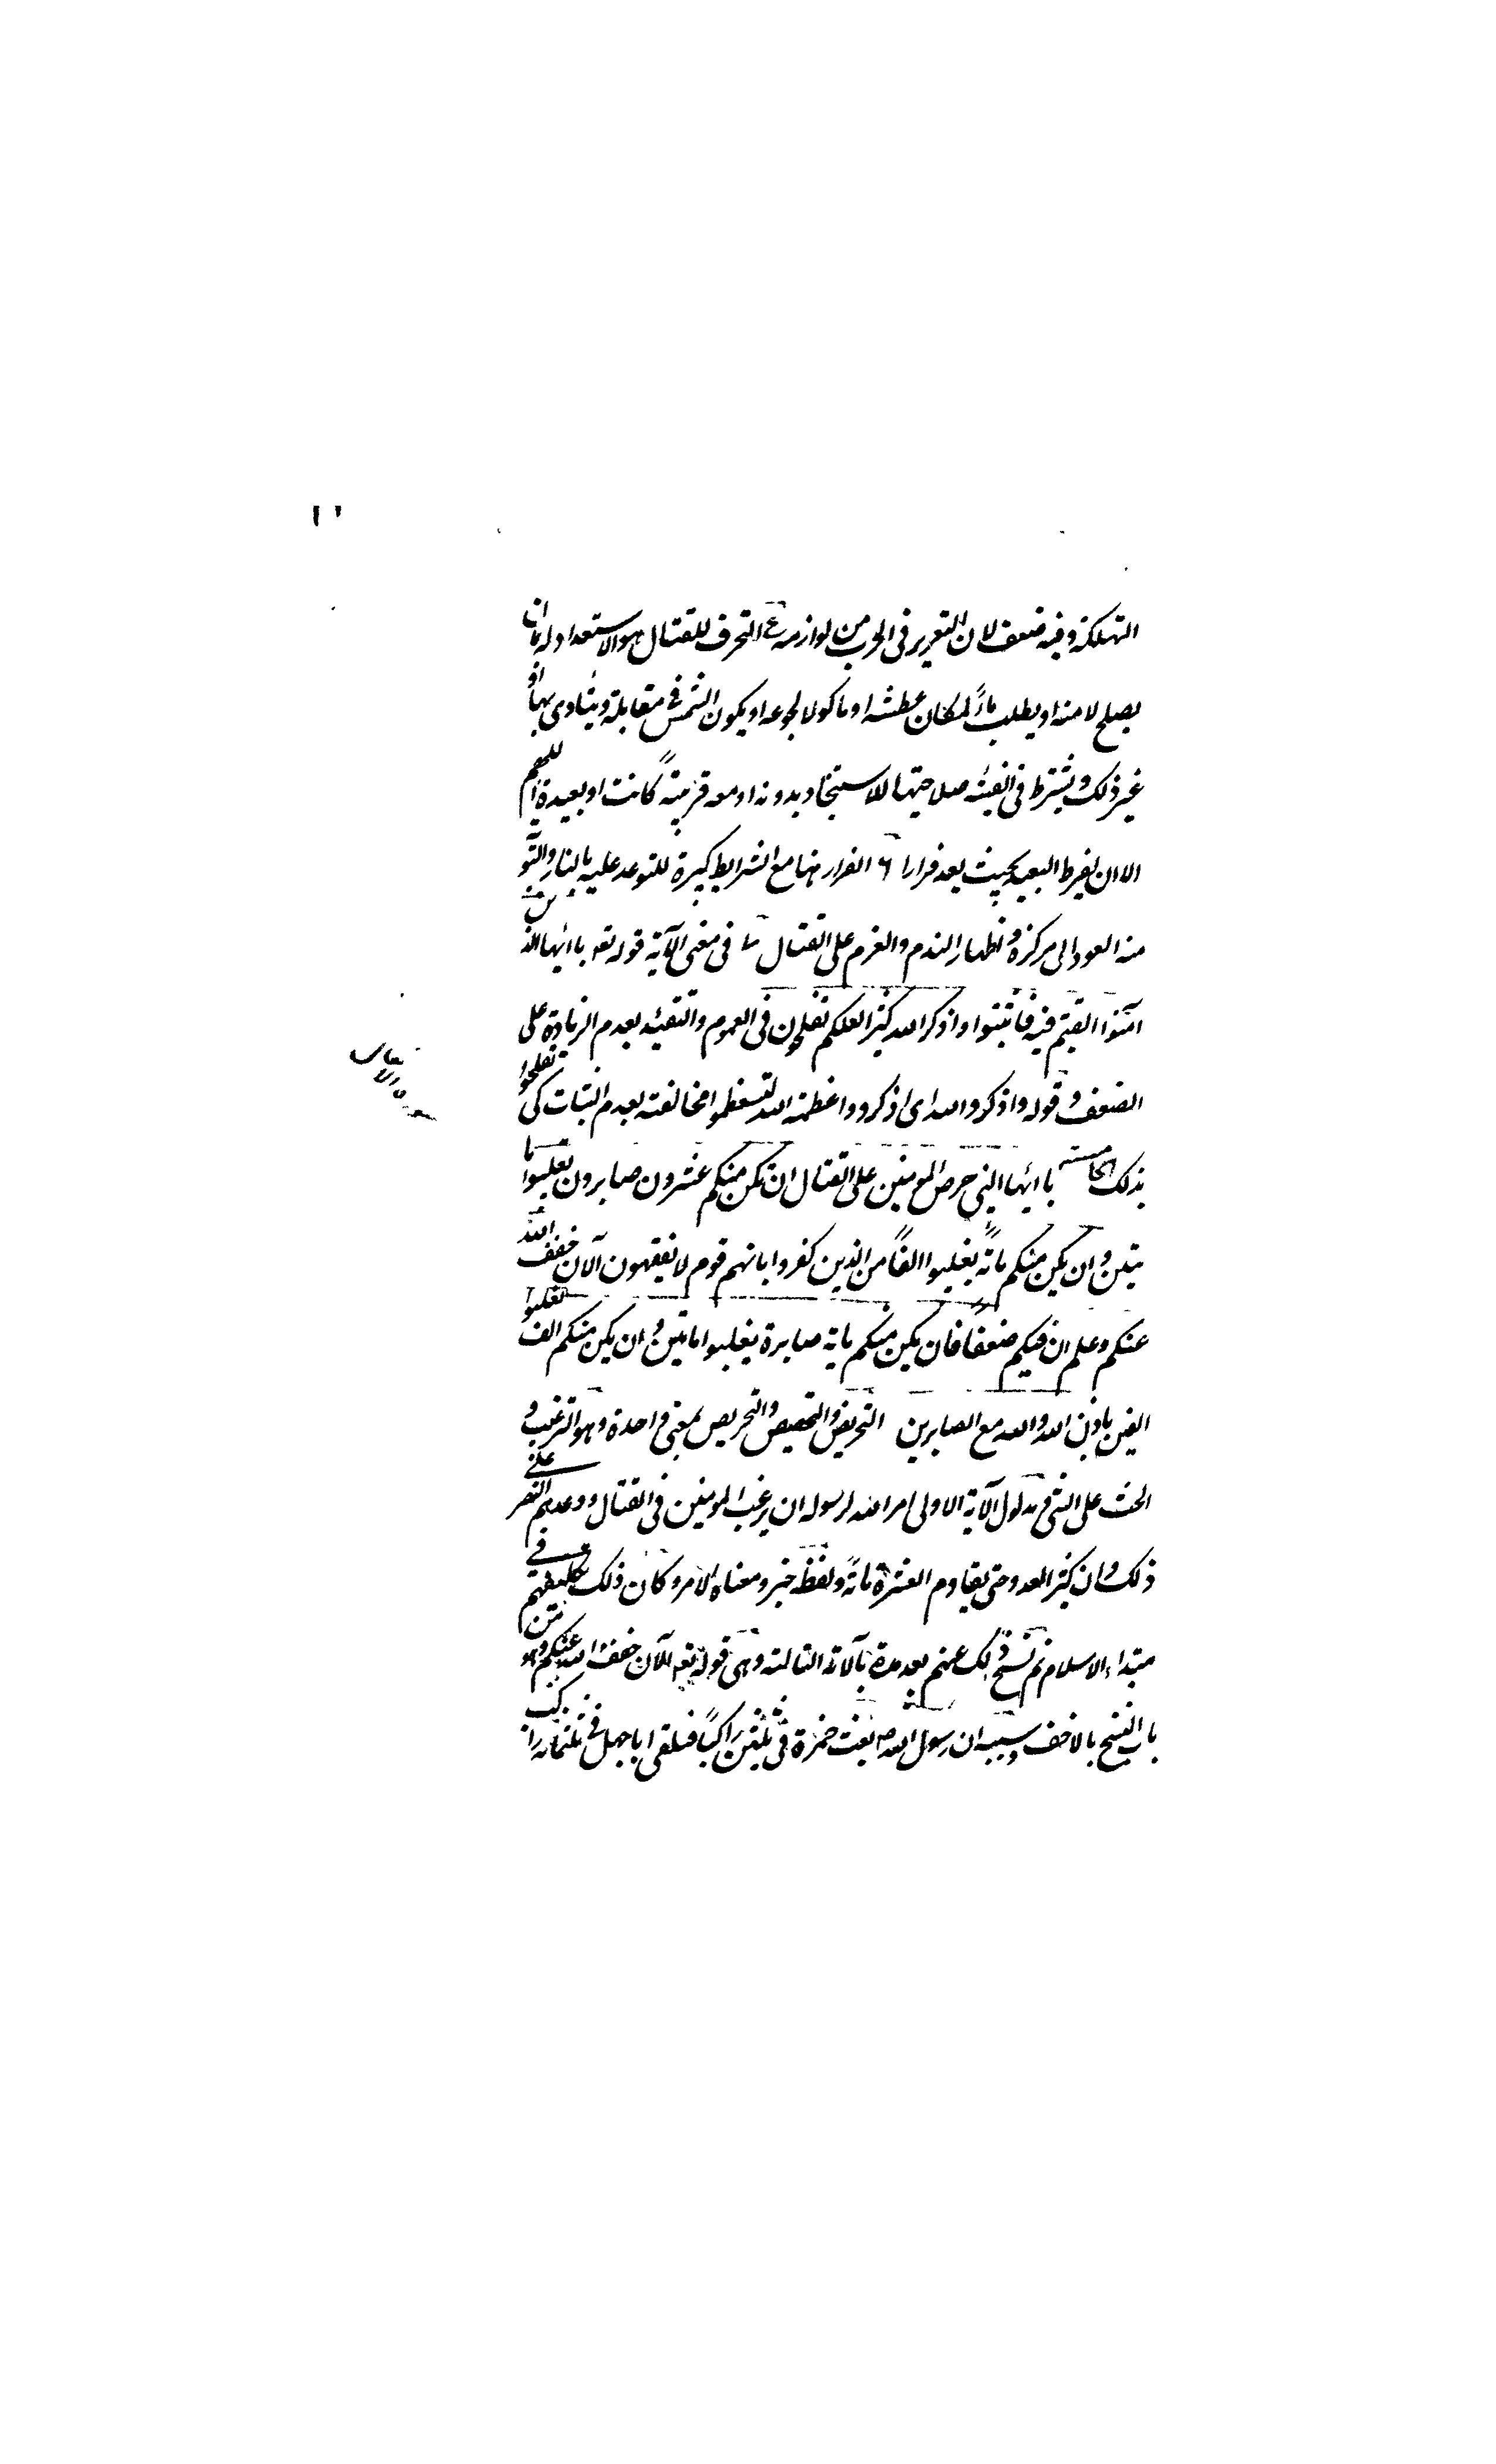 التهلكة وفيه ضعف لان التغرير فى الحرب من لوازمه ع التحرف للقتال هو الاستعداد له بان
يصلح لامته او يطلب ماءً لمكان عطشه او ماكولا لجوعه او يكون الشمس فى مقابلة ويتاذى بها او
غير ذلك ويشترط فى الفئة صلاحيتها للاستنجاد بدونه او معه قريبةً كانت او بعيدة اللهم
الا ان يفرط البعيد بحيث يعد فرارا ٦ الفرار هنا مع الشرايط كبيرة للتوعد عليه بالنار والتوبة
منه العود الى مركزه واظهار الندم والعزم على القتال ٧ فى معنى الآية قوله تعـ يا ايها الذين
امنوا اذا لقيتم فيه فاثبتوا واذكر الله كثيرا لعلكم تفلحون فى العموم والتقييد بعدم الزيادة على
الضعف وقوله واذكروا الله اى اذكروا عظمة الله لتستعظموا مخالفته بعدم الثبات كى تفلحوا
بذلك الخامسة يا ايها النبي حرض المومنين على القتال ان يكن منكم عشرون صابرون يغلبوا ما
يتين وان يكن منكم مائة يغلبوا الفاً من الذين كفروا بانهم قوم لا يفقهون الآن خفف الله
عنكم وعلم ان فيكم ضعفا فان يكن منكم ماية صابرة يغلبوا ماتين وان يكن منكم الف يغلبوا
الفين باذن الله والله مع الصابرين التحريض والتحضيض والتحريص بمعنى واحدة وهو الترغيب و
الحث على الشى فمدلول الآية الاولى امر الله لرسوله ان يرغب المومنين فى القتال ووعدهم النصر على
ذلك وان كثر العدو حتى يقاوم العشرة مائةً ولفظه خبر ومعناه الامر وكان ذلك تكليفهم فى
مبتداء الاسلام ثم نسخ ذلك عنهم بعد مدة بآلاية الثالثة وهى قوله تعـ الآن خفف الله عنكم وهو من
باب النسخ بالاخف وسببه ان رسول الله ص بعث حمزة فى ثلثين راكباً فلقى ابا جهل فى ثلثمائة راكب